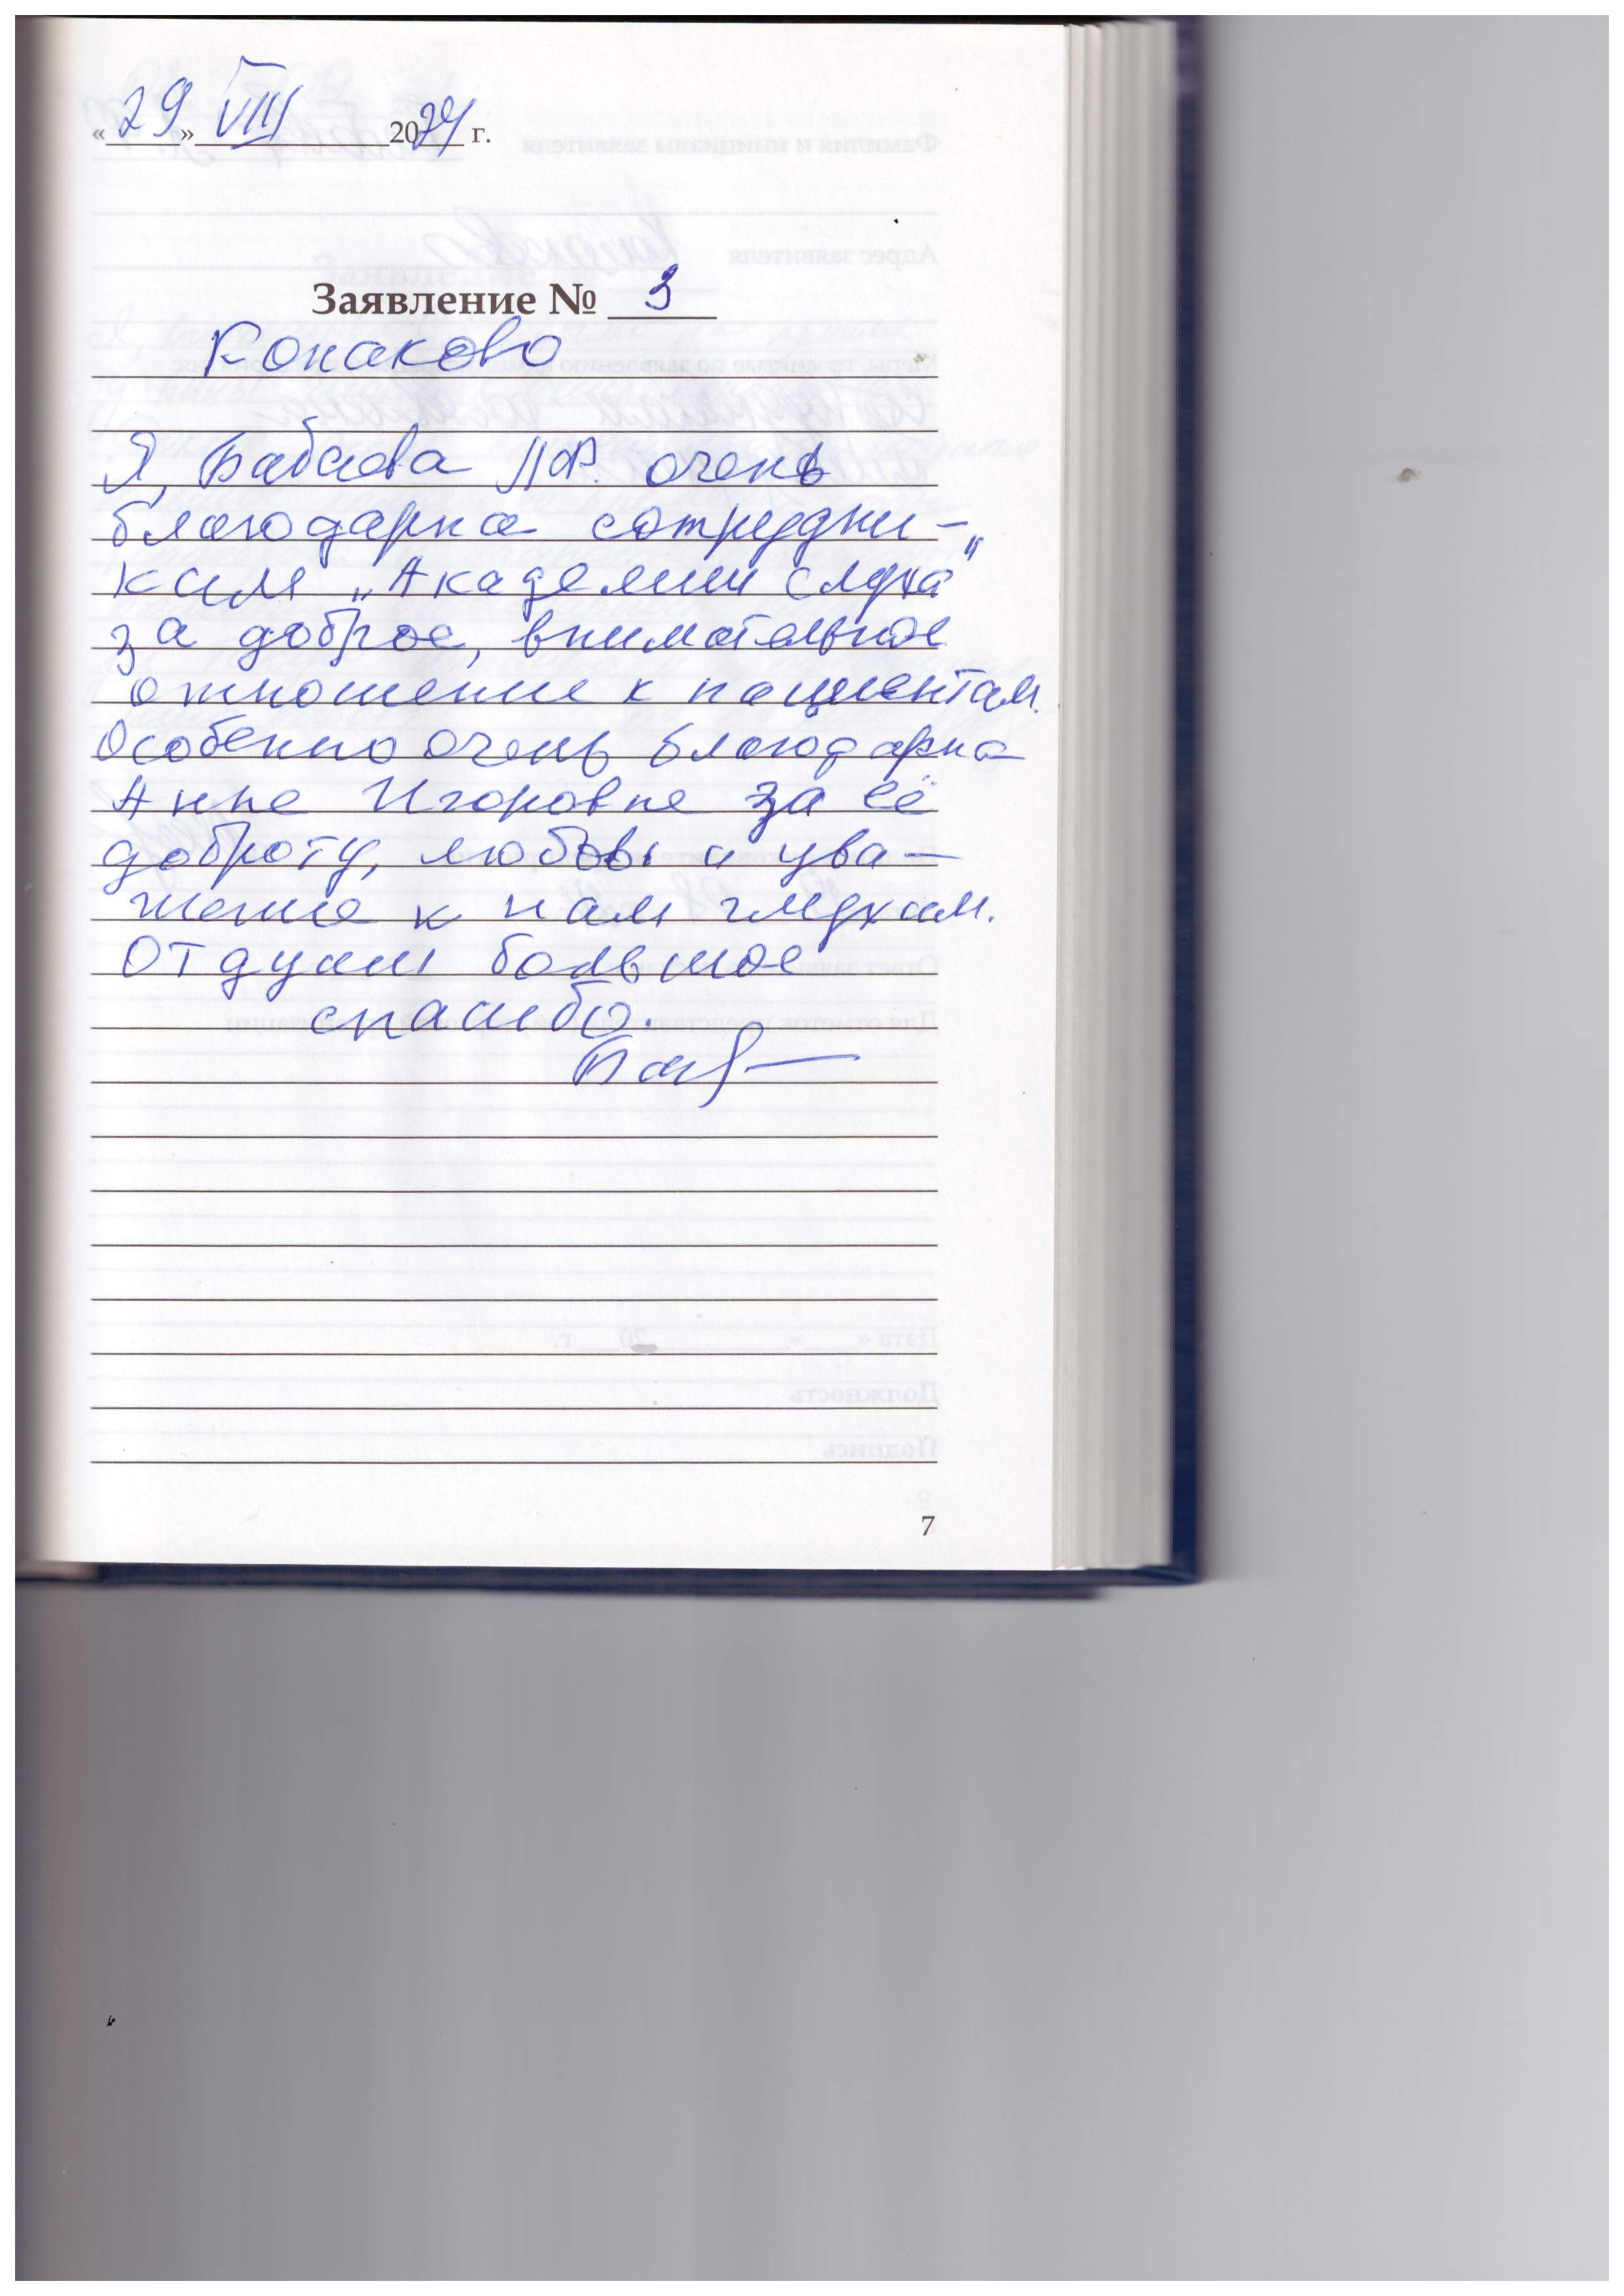 «29» VIII 2024 г.
Заявление № 3
Конаково
Я, Бабаева Л.Ф. очень
благодарна сотрудни-
кам „Академии слуха"
за доброе, внимательное
отношение к пациентам.
Особенно очень благодарна
Анне Игоровне за её
доброту, любовь и ува-
жение к нам глухим.
От души большое
спасибо.
7